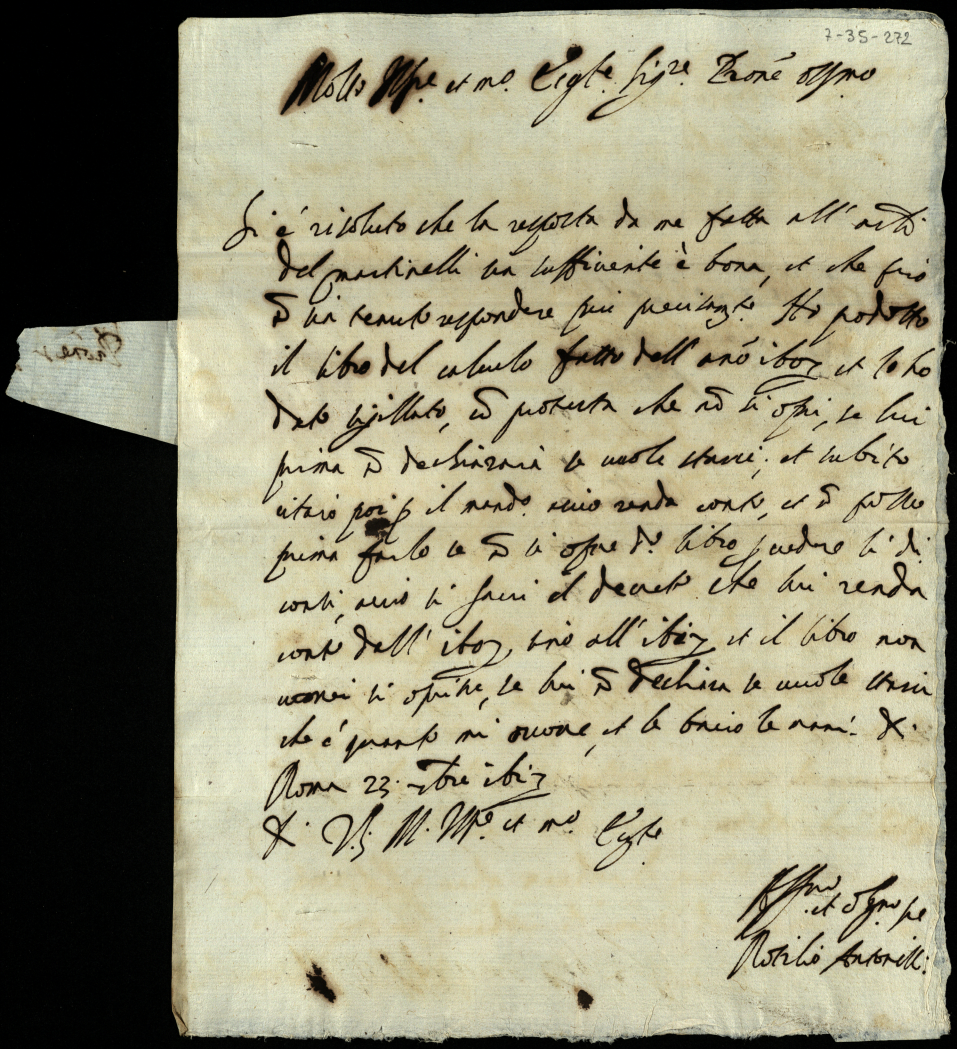 7-35-272
Molto Ill.re et m.o Ecc.te Sig.re Prone oss.mo
Si é risoluto che la risposta da me fatta all' arti
del martinelli sia sufficiente è bona, et che più
nō sia tenuto respondere più Ho prodotto
il libro del calculo fatto dell' anō 1607 et lo ho
dato sigillato, cō protesta che nō si opri, se lui
prima nō dechiararà se vuole starci, et subito
citarò poi ꝑ il mando acciò renda conto, et nō posso
prima farlo se nō si opre d.o libro ꝑ vedere li di
conti, acciò si facci el decreto che lui renda
conto dall' 1607 sino all' 1617 et il libro non
vorrei si oprisse, se lui nō dechiara se vuole starci
che é quanto mi occorre, et le bacio le mani. &.
Roma 23. 7bre 1617
D. V.S. M. Ill.re et m.o Ecc.te
Aff.mo et oblig.mo se
Rotilio Antonelli